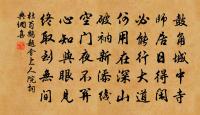 鼓角城中寺
師居日得閑
必能行大道
何用在深山
破衲新添線
空門夜不
心知與眼見
終取到無間
杜荀鶴題會上人院詞
典網